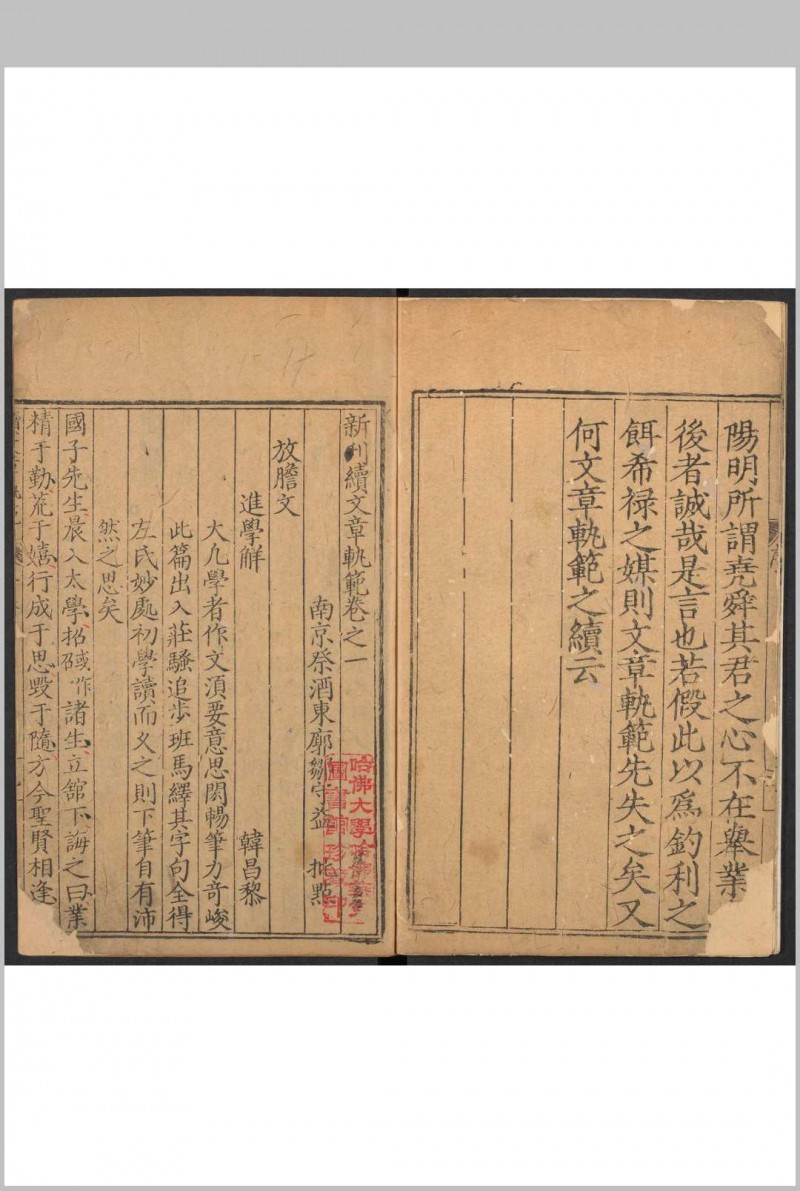 陽明所謂堯舜其君之心不在舉業
後者誠哉是言也若假此以為釣利之
餌希禄之媒則文章軌範先失之矣又
何文章軌範之續云
新刊續文章軌範卷之一
南京祭酒東廓鄒守益 批點
放膽文
進學解 韓昌黎
大凡學者作文須要意思閎暢筆力奇峻
此篇出入莊騷追步班馬繹其字句全得
左氏妙處初學讀而乂之則下筆自有沛
然之思矣
國子先生晨入太學招諸生立舘下誨之曰業
精于勤荒于嬉行成于思毀于隨方今聖賢相逢
哈佛大學
圖書館珍藏印